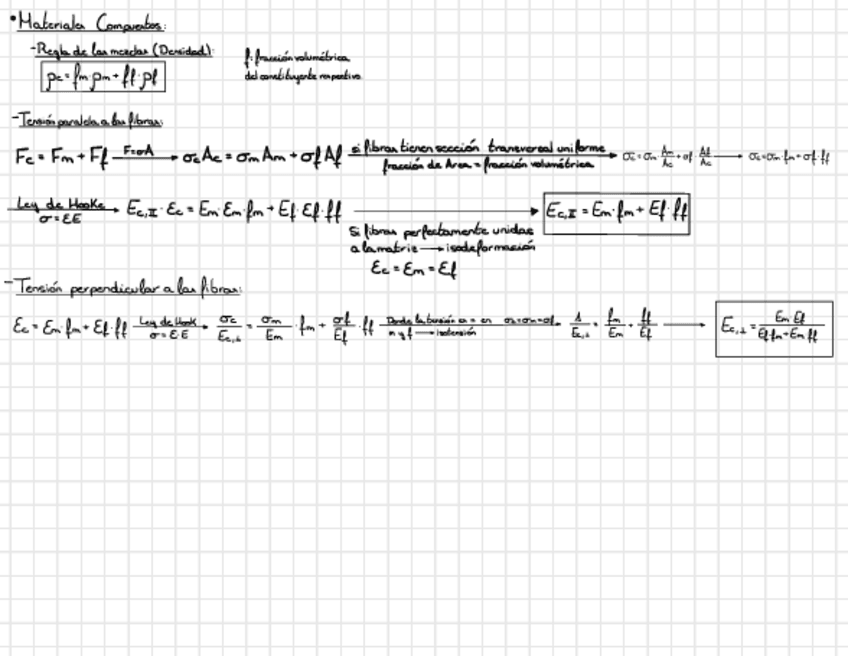 • Materiales Compuestos:
- Regla de las mezclas (Densidad):
ρc = fm ρm + ff · ρf
f: fracción volumétrica
del constituyente respectivo
- Tensión paralela a las fibras:
Fc = Fm + Ff F=σA → σc Ac = σm Am + σf Af si fibras tienen sección transversal uniforme fracción de Area = fracción volumétrica → σc = σm · Am/Ac + σf · Af/Ac → σc = σm · fm + σf · ff
Ley de Hooke σ = EE → Ec,II · Ec = Em · Em · fm + Ef · Ef · ff → Ec,II = Em · fm + Ef · ff
Si fibras perfectamente unidas
a la matriz → isodeformación
Ec = Em = Ef
- Tensión perpendicular a las fibras:
Ec = Em fm + Ef · ff Ley de Hook σ = E·E → σc/Ec,⊥ = σm/Em · fm + σf/Ef · ff Donde la tensión es = en m y f → isotensión σc=σm=σf → 1/Ec,⊥ = fm/Em + ff/Ef → Ec,⊥ = Em Ef / Ef fm + Em ff